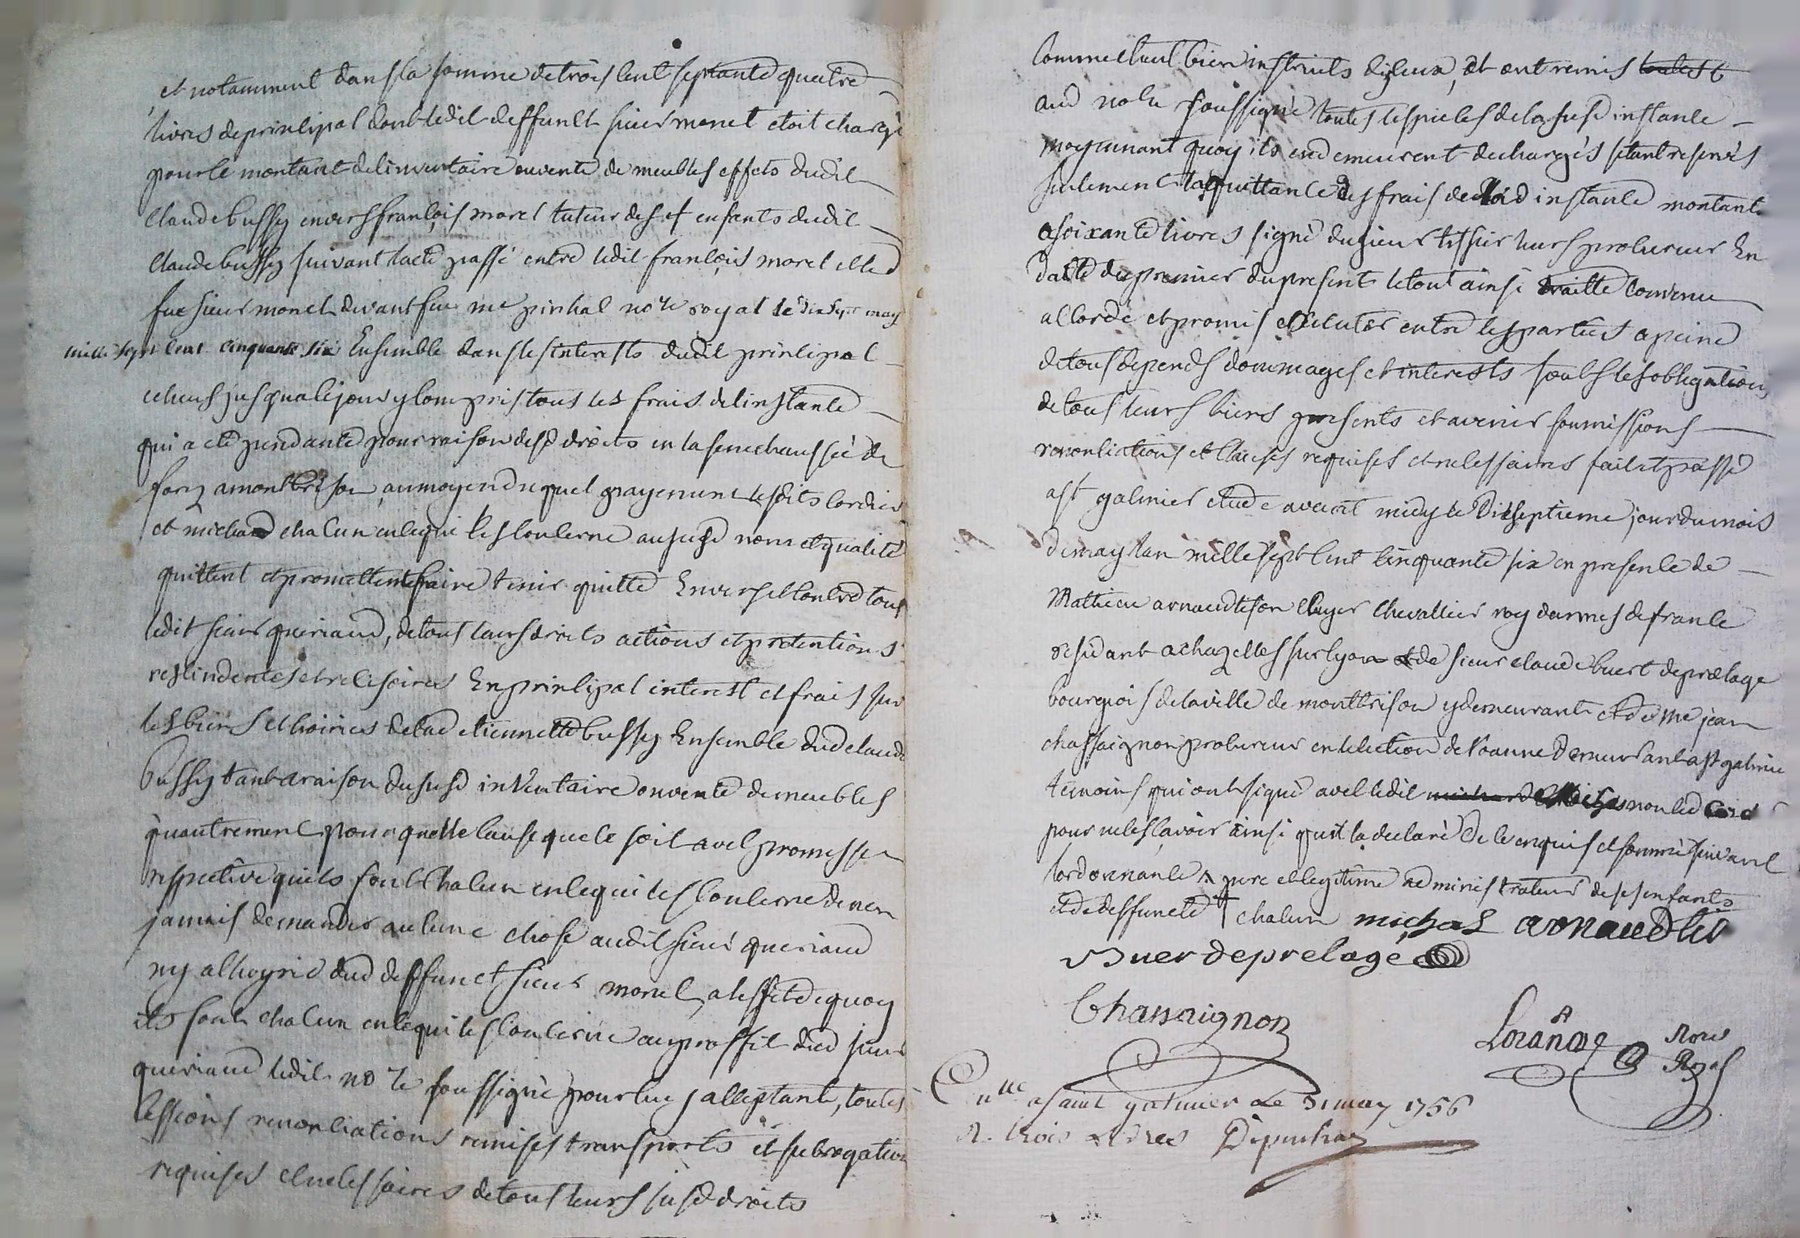 et notamment dans la somme de trois cent septante quatre
livres de principal dont ledit deffunct sieur monet etoit chargé
pour le montant de linventaire ou vente de meubles effets dudit
Claude bussy envers françois morel tuteur des enfants dudit
Claude bussy suivant lacte passé entre ledit françois morel et led
feu sieur monet devant feu me pinhal nore royal le dix sept may
mille sept cent cinquante six Ensemble dans les interests dudit principal
echeus jusqua ce jour y compris tous les frais de linstance
qui a eté pendante pour raison desd droits en la senechaussée de
forez a montbrison, au moyen duquel payement lesdits cordier
et michard chacun en ce qui les concerne au susd nom et qualité
quittent et promettent faire tenir quitte Envers et contre tous
ledit sieur queriaud, de tous leurs droits actions et pretentions
rescindentes et rescisoires En principal interest et frais sur
les biens et hoiries de lad etiennette bussy Ensemble dud claude
bussy tant a raison du susd inventaire ou vente de meubles
quautrement pour quelle cause que ce soit avec promesse
respective quils font chacun en ce qui les concerne de n'en
jamais demander aucune chose audit sieur queriaud
ny a lhoyrie dud deffunct sieur monet, a leffet de quoy
ils font chacun en ce qui les concerne au proffit dud sieur
queriaud ledit nore soussigné pour luy acceptant, toutes
cessions renonciations remises transports et subrogation
requises et necessaires de tous leurs susd droits
comme etant bien instruits diceux, et ont remis
aud nore soussigné toutes les pieces de la susd instance
moyennant quoy ils en demeurent dechargés setant reservés
seulement la quittance des frais de lad instance montant
a soixante livres signé du sieur tissier leurs procureur En
datte du premier du present le tout ainsi traitté convenu
accordé et promis executer entre les parties a peine
de tous depends dommages et interests soubs les obligations
de tous leurs biens presents et avenir soumissions
renonciations et clauses requises et necessaires fait et passé
a st galmier etude avant midy le Dix septieme jour du mois
de may lan mille sept cent cinquante six en presence de
Mathieu arnaud tison ecuyer chevallier roy darmes de france
residant a chazelles sur lyon et de sieur claude buert de prelage
bourgeois de la ville de montbrison y demeurant et de me jean
chassaignon procureur en lelection de roanne demeurant a st galmier
temoins qui ont signé avec ledit non led
pour ne le sçavoir ainsi quil la declaré De ce enquis et sommé suivant
lordonnance pere et legitime administrateur de ses enfants
et de deffuncte chacun michas arnaud
Buer de prelage
Chassaignon
Nore
Royal
Cnllé a saint galmier Le 31 may 1756
R. trois Livres Depinhac